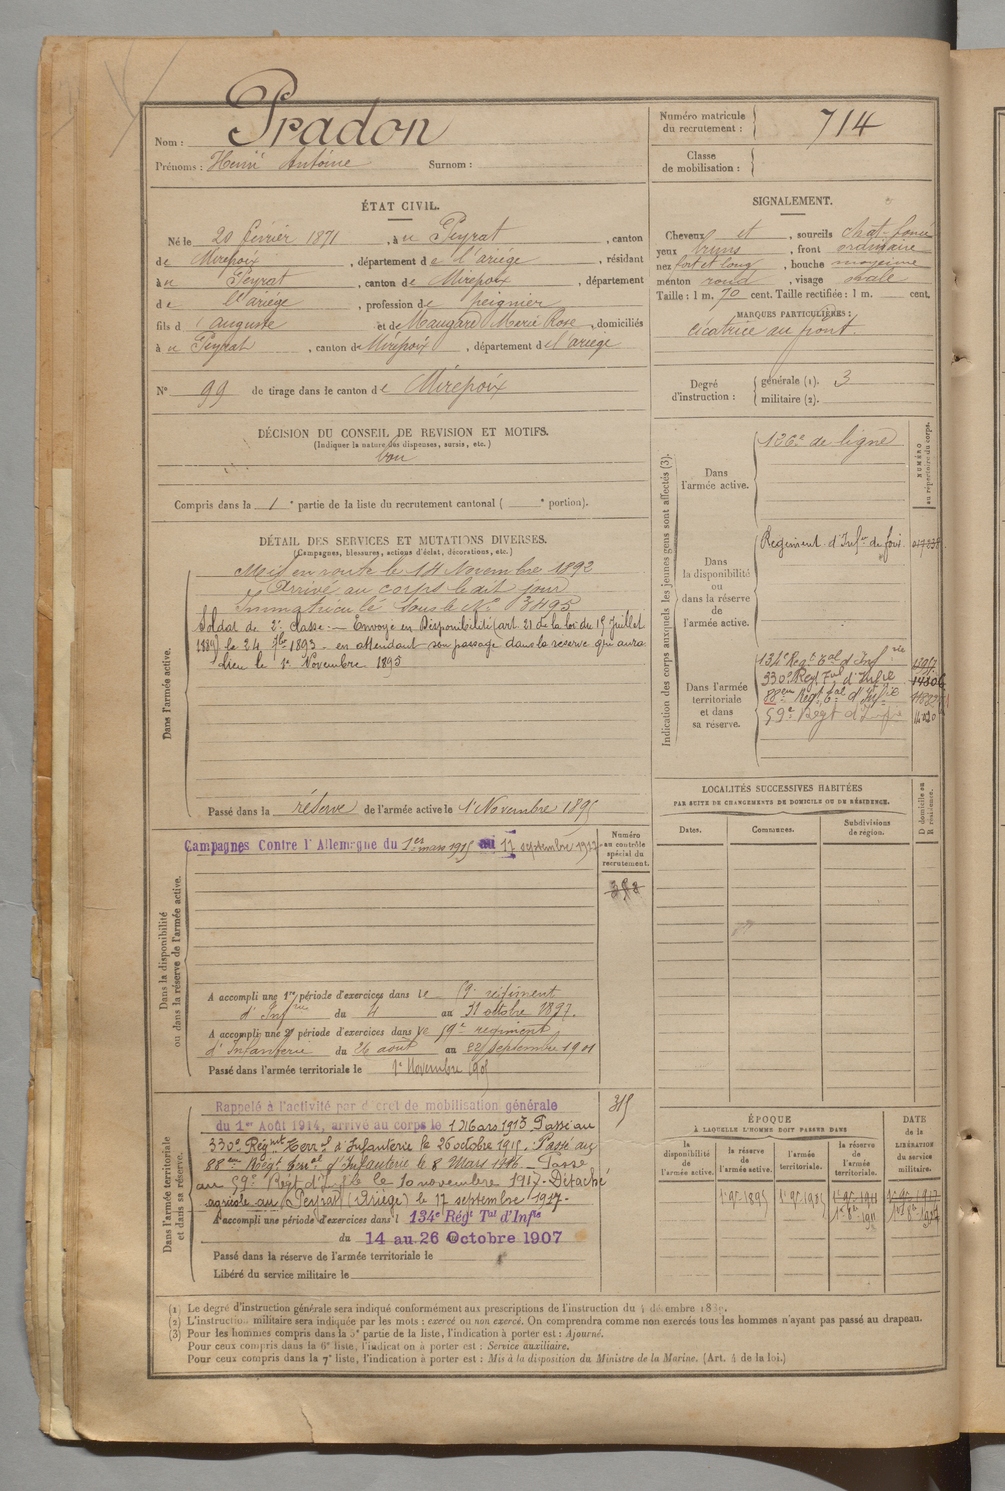 Nom : Pradon
Prénoms : Henri Antoine Surnom :
Numéro matricule du recrutement : 714
Classe de mobilisation :
ÉTAT CIVIL.
Né le 20 février 1871, à Peyrat, canton
de Mirepoix, département de l'ariège, résidant
à Peyrat, canton de Mirepoix, département
de l'ariège, profession de peignier
fils d'auguste et de Maugard Marie Rose, domiciliés
à Peyrat, canton de Mirepoix, département de l'ariège
N° 99 de tirage dans le canton de Mirepoix
DÉCISION DU CONSEIL DE REVISION ET MOTIFS.
(Indiquer la nature des dispenses, sursis, etc.)
bon
Compris dans la 1e partie de la liste du recrutement cantonal ( e portion).
SIGNALEMENT.
Cheveux et, sourcils chat. foncé
yeux bruns, front ordinaire
nez fort et long, bouche moyenne
menton rond, visage ovale
Taille : 1 m. 70 cent. Taille rectifiée : 1 m. cent.
MARQUES PARTICULIÈRES :
cicatrice au front.
Degré d'instruction : générale (1). 3
militaire (2).
DÉTAIL DES SERVICES ET MUTATIONS DIVERSES.
(Campagnes, blessures, actions d'éclat, décorations, etc.)
Dans l'armée active.
Mis en route le 14 Novembre 1892
Arrivé au corps le dit jour
Immatriculé sous le N° 3495
Soldat de 2e classe. — Envoyé en Disponibilité (art. 21 de la loi du 15 juillet
1889) le 24 7bre 1893 - en attendant son passage dans la réserve qui aura
lieu le 1er Novembre 1895
Passé dans la réserve de l'armée active le 1er Novembre 1895
Dans la disponibilité ou dans la réserve de l'armée active.
Campagnes Contre l'Allemagne du 1er mars 1915 au 17 septembre 1917
Numéro au contrôle spécial du recrutement.
A accompli une 1re période d'exercices dans le 59e régiment
d'Infrie du 4 au 31 octobre 1897.
A accompli une 2e période d'exercices dans le 59e régiment
d'Infanterie du 26 août au 22 septembre 1901
Passé dans l'armée territoriale le 1er Novembre 1905
Dans l'armée territoriale et dans sa réserve.
315
Rappelé à l'activité par décret de mobilisation générale
du 1er Août 1914, arrivé au corps le 1 Mars 1915 Passé au
330e Régnt Terral d'Infanterie le 26 octobre 1915. Passé au
88em Regt Terral d'Infanterie le 8 Mars 1916. — Passé
au 59e Regt d'Infie le 10 novembre 1917. Détaché
agricole au (Peyrat) (Ariège) le 17 septembre 1917.
A accompli une période d'exercices dans l 134e Régt Tal d'Infie
du 14 au 26 Octobre 1907
Passé dans la réserve de l'armée territoriale le
Libéré du service militaire le
Indication des corps auxquels les jeunes gens sont affectés (3).
NUMÉRO au répertoire du corps.
Dans l'armée active.
126e de ligne
Dans la disponibilité ou dans la réserve de l'armée active.
Régiment d'Infie de foix
Dans l'armée territoriale et dans sa réserve.
134e Regt Tal d'Infrie
330e Regt Tal d'Infie
88em Regt Tal d'Infie
59e Regt d'Infie
LOCALITÉS SUCCESSIVES HABITÉES
PAR SUITE DE CHANGEMENTS DE DOMICILE OU DE RÉSIDENCE.
Dates. Communes. Subdivisions de région. D domicile ou R résidence.
ÉPOQUE
À LAQUELLE L'HOMME DOIT PASSER DANS
la disponibilité de l'armée active. la réserve de l'armée active. l'armée territoriale. la réserve de l'armée territoriale. DATE de la LIBÉRATION du service militaire.
1er 9bre 1895 1er 9bre 1905
(1) Le degré d'instruction générale sera indiqué conformément aux prescriptions de l'instruction du 4 décembre 1889.
(2) L'instruction militaire sera indiquée par les mots : exercé ou non exercé. On comprendra comme non exercés tous les hommes n'ayant pas passé au drapeau.
(3) Pour les hommes compris dans la 5e partie de la liste, l'indication à porter est : Ajourné.
Pour ceux compris dans la 6e liste, l'indication à porter est : Service auxiliaire.
Pour ceux compris dans la 7e liste, l'indication à porter est : Mis à la disposition du Ministre de la Marine. (Art. 4 de la loi.)